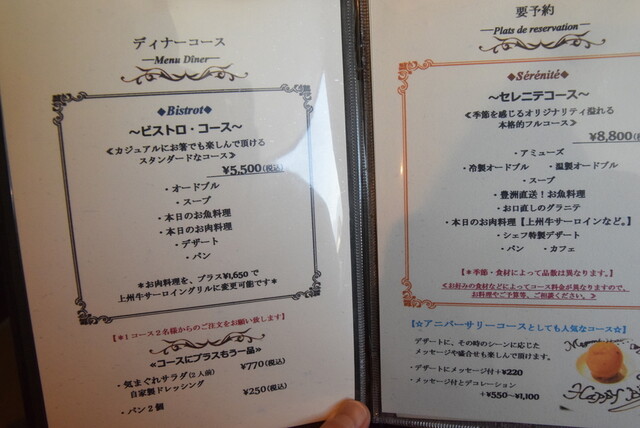 ディナーコース
Menu Dîner
◆Bistrot◆
～ビストロ・コース～
≪カジュアルにお箸でも楽しんで頂ける
スタンダードなコース≫
¥5,500(税込)
・オードブル
・スープ
・本日のお魚料理
・本日のお肉料理
・デザート
・パン
＊お肉料理を、プラス¥1,650で
上州牛サーロイングリルに変更可能です＊
【＊1コース2名様からのご注文をお願い致します】
≪コースにプラスもう一品≫
・気まぐれサラダ(2人前) ¥770(税込)
自家製ドレッシング
・パン2個 ¥250(税込)
要予約
Plats de reservation
◆Sérénité◆
～セレニテコース～
≪季節を感じるオリジナリティ溢れる
本格的フルコース≫
¥8,800(税
・アミューズ
・冷製オードブル ・温製オードブル
・スープ
・豊洲直送！お魚料理
・お口直しのグラニテ
・本日のお肉料理【上州牛サーロインなど。】
・シェフ特製デザート
・パン ・カフェ
【＊季節・食材によって品数は異なります。】
≪お好みの食材などによってコース料金が異なりますので、
お料理やご予算等、ご相談ください。≫
☆アニバーサリーコースとしても人気なコース☆
デザートに、その時のシーンに応じた
メッセージや盛合せも楽しんで頂けます。
・デザートにメッセージ+¥220
・メッセージ付とデコレーション
+¥550～¥1,100
Happy